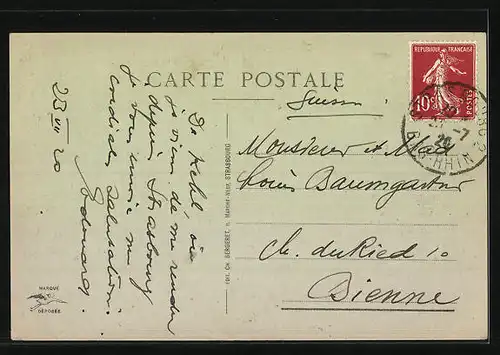 CARTE POSTALE
REPUBLIQUE FRANÇAISE
10c
POSTES
BAS-RHIN
(Suisse)
Monsieur et Mad
Louis Baumgartner
Ch. du Ried 10
Bienne
De Kehl, où
je viens de me rendre
depuis Strasbourg
je vous envoie mes
cordiales salutations.
Edouard.
23 VII 20
EDIT. CH. BERGERET, 11, MARCHÉ-NEUF, STRASBOURG
MARQUE
DÉPOSÉE